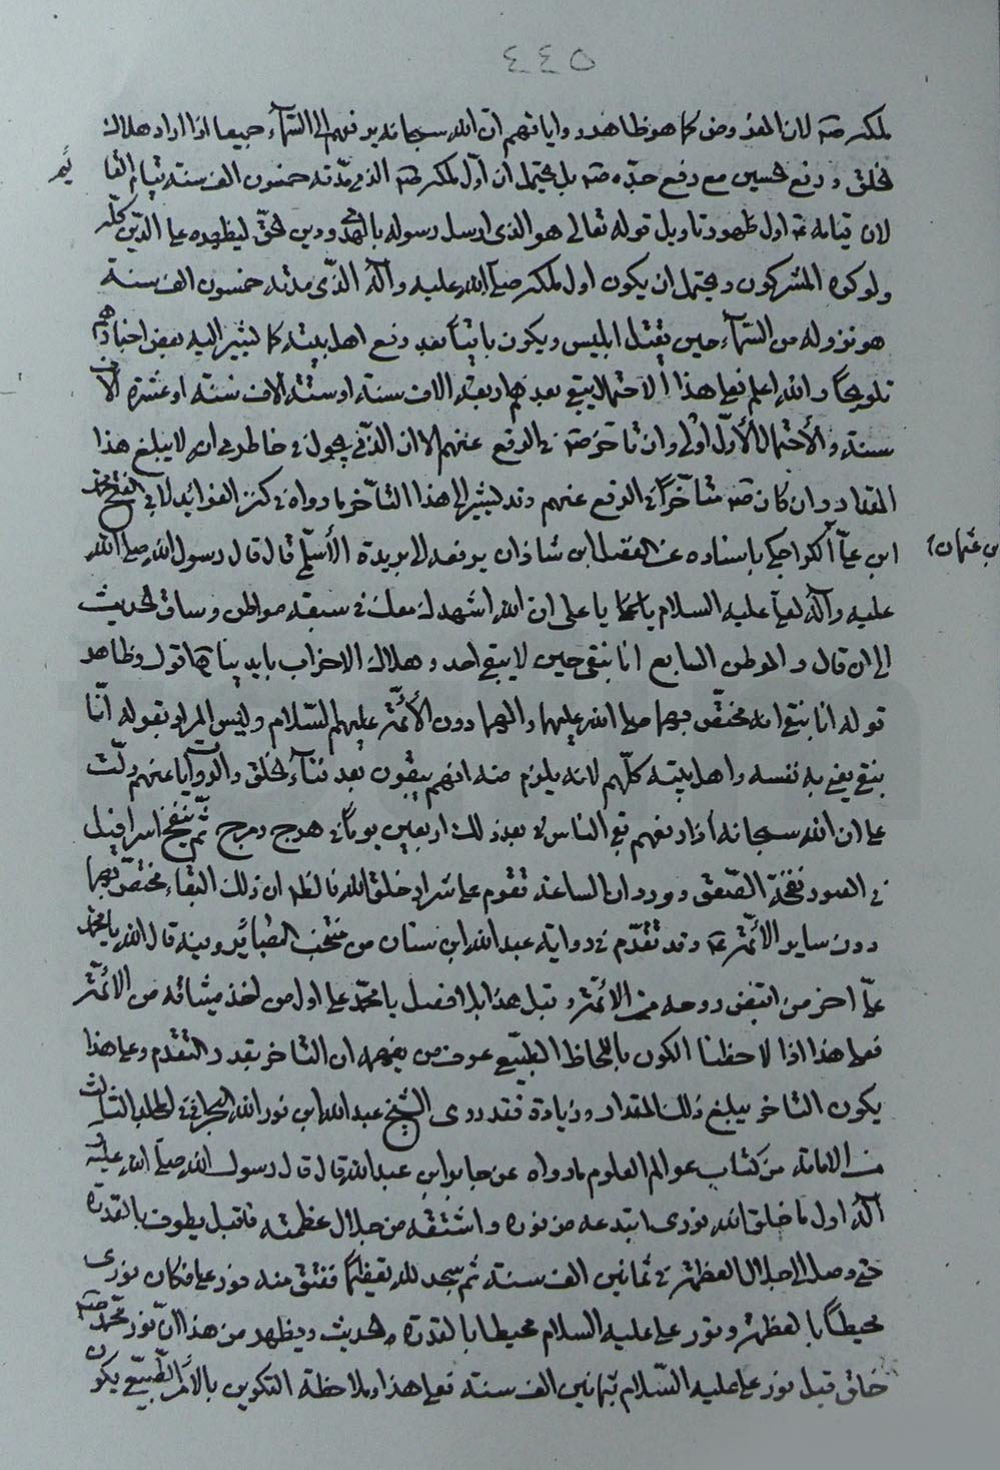 ٤٤٥
لملكه صه لان المفروض كما هو ظاهر رواياتهم ان الله سبحانه يرفعهم الى السمآء جميعا اذا اراد هلاك
الخلق ورفع الحسين مع رفع جده صه بل يحتمل ان اول ملكه صه الذي مدته خمسون الف سنة قيام القائم
لان قيامه عه اول ظهور تاويل قوله تعالى هو الذي ارسل رسوله بالهدى ودين الحق ليظهره على الدين كله
ولو كره المشركون ويحتمل ان يكون اول ملكه صلى الله عليه وآله الذي مدته خمسون الف سنة
هو نزوله من السمآء حين يقتل ابليس ويكون باقيا بعد رفع اهل بيته كما تشير اليه بعض اخبارهم
تلويحا والله اعلم فعلى هذا الاحتمال يبقى بعدهم اربعة الاف سنة او ستة الاف سنة او عشرة الاف
سنة والأحتمال الأول اولى وان تاخر صه في الرفع عنهم الا ان الذي يجول في خاطري انه لا يبلغ هذا
المقدار وان كان صه متأخرا في الرفع عنهم وقد يشير الى هذا التأخر ما رواه في كنز الفوائد لابي الفتح محمد
ابن علي الكراجكي باسناده عن الفضل ابن شاذان يرفعه الى بريدة الأسلمي قال قال رسول الله صلى الله
بن عثمان
عليه وآله لعلي عليه السلام يا علي ان الله اشهدك معك في سبعة مواطن وساق الحديث
الى ان قال والموطن السابع انا نبقى حين لا يبقى احد وهلاك الاحزاب بايدينا اقول وظاهر
قوله انا نبقى انه مختص بهما صلى الله عليهما وآلهما دون الأئمة عليهم السلام وليس المراد بقوله انا
نبقى يعني به نفسه واهل بيته كلهم لانه يلزم منه انهم يبقون بعد فنآء الخلق والروايات عنهم دلت
على ان الله سبحانه اذا رفعهم بقى الناس بعد ذلك اربعين يوما في هرج ومرج ثم ينفخ اسرافيل
في الصور نفخة الصعق وورد ان الساعة تقوم على شرار خلق الله فالظاهر ان ذلك البقاء مختص بهما
دون ساير الائمة عه وقد تقدم في رواية عبد الله ابن سنان من منتخب البصائر وفيه قال الله يا محمد
علي اخر من اقبض روحه من الائمة وقبل هذا بلا فصل يا محمد علي اول من اخذ ميثاقه من الائمة
فعلى هذا اذا لاحظنا الكون باللحاظ الطبيعي عرف من يفهمه ان التاخر بقدر التقدم وعلى هذا
يكون التاخر يبلغ ذلك المقدار وزيادة فقد روى الشيخ عبد الله ابن نور الله البحراني في المجلد الثالث
من الامامة من كتاب عوالم العلوم ما رواه عن جابر ابن عبد الله قال قال رسول الله صلى الله عليه و
آله اول ما خلق الله نوري ابتدعه من نوره واشتقه من جلال عظمته فاقبل يطوف بالقدرة
حتى وصل الى جلال العظمة في ثمانين الف سنة ثم سجد لله تعظيما ففتق منه نور علي فكان نوري
محيطا بالعظمة ونور علي عليه السلام محيطا بالقدرة الحديث ويظهر من هذا ان نور محمد صه
خلق قبل نور علي عليه السلام بثمانين الف سنة فعلى هذا وملاحظة التكوين بالامر الطبيعي يكون